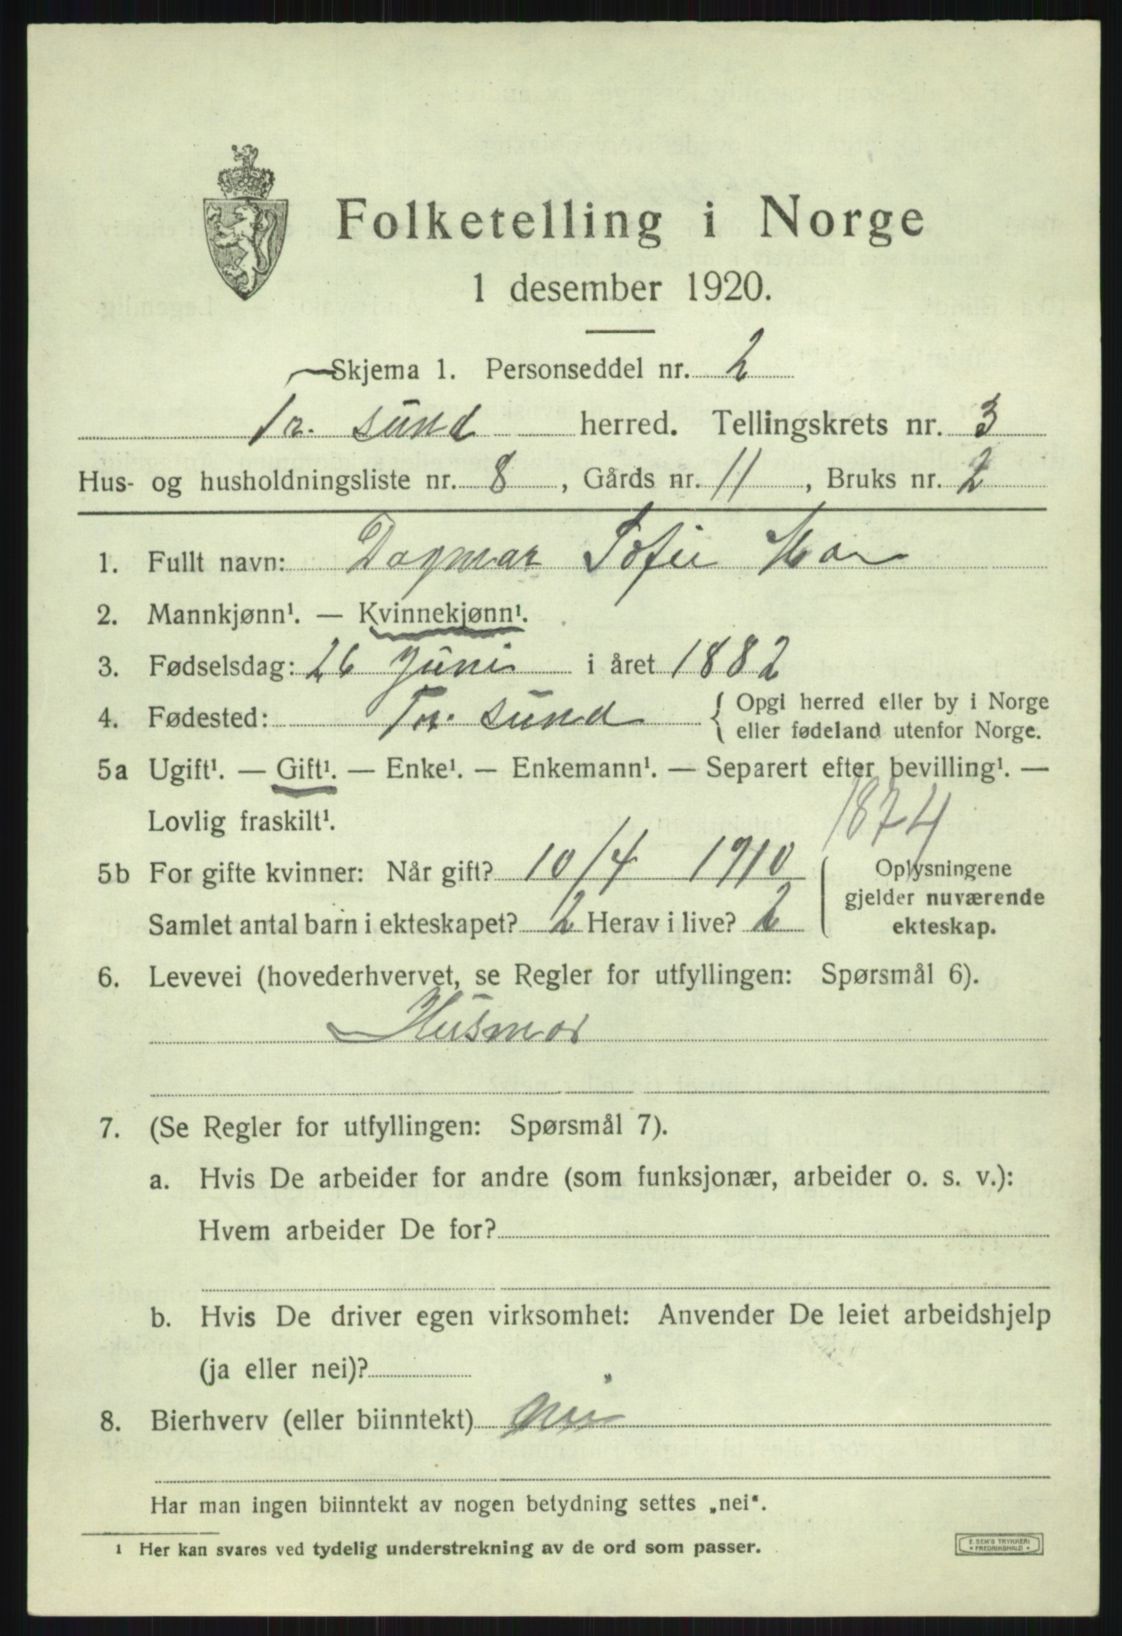 Folketelling i Norge
1 desember 1920.
Skjema 1. Personseddel nr. 2
Tr. sund herred. Tellingskrets nr. 3
Hus- og husholdningsliste nr. 8, Gårds nr. 11, Bruks nr. 2
1. Fullt navn: Dagmar Sofie
2. Mannkjønn¹. — Kvinnekjønn¹.
3. Fødselsdag: 26 Juni i året 1882
4. Fødested: Tr. sund { Opgi herred eller by i Norge
eller fødeland utenfor Norge.
5a Ugift¹. — Gift¹. — Enke¹. — Enkemann¹. — Separert efter bevilling¹. —
Lovlig fraskilt¹.
1874
5b For gifte kvinner: Når gift? 10/4 1910
Samlet antal barn i ekteskapet? 2 Herav i live? 2
Oplysningene
gjelder nuværende
ekteskap.
6. Levevei (hovederhvervet, se Regler for utfyllingen: Spørsmål 6).
Husmor
7. (Se Regler for utfyllingen: Spørsmål 7).
a. Hvis De arbeider for andre (som funksjonær, arbeider o. s. v.):
Hvem arbeider De for?
b. Hvis De driver egen virksomhet: Anvender De leiet arbeidshjelp
(ja eller nei)?
8. Bierhverv (eller biinntekt) nei
Har man ingen biinntekt av nogen betydning settes „nei".
¹ Her kan svares ved tydelig understrekning av de ord som passer.
E. SEM'S TRYKKERI
FREDRIKSHALD